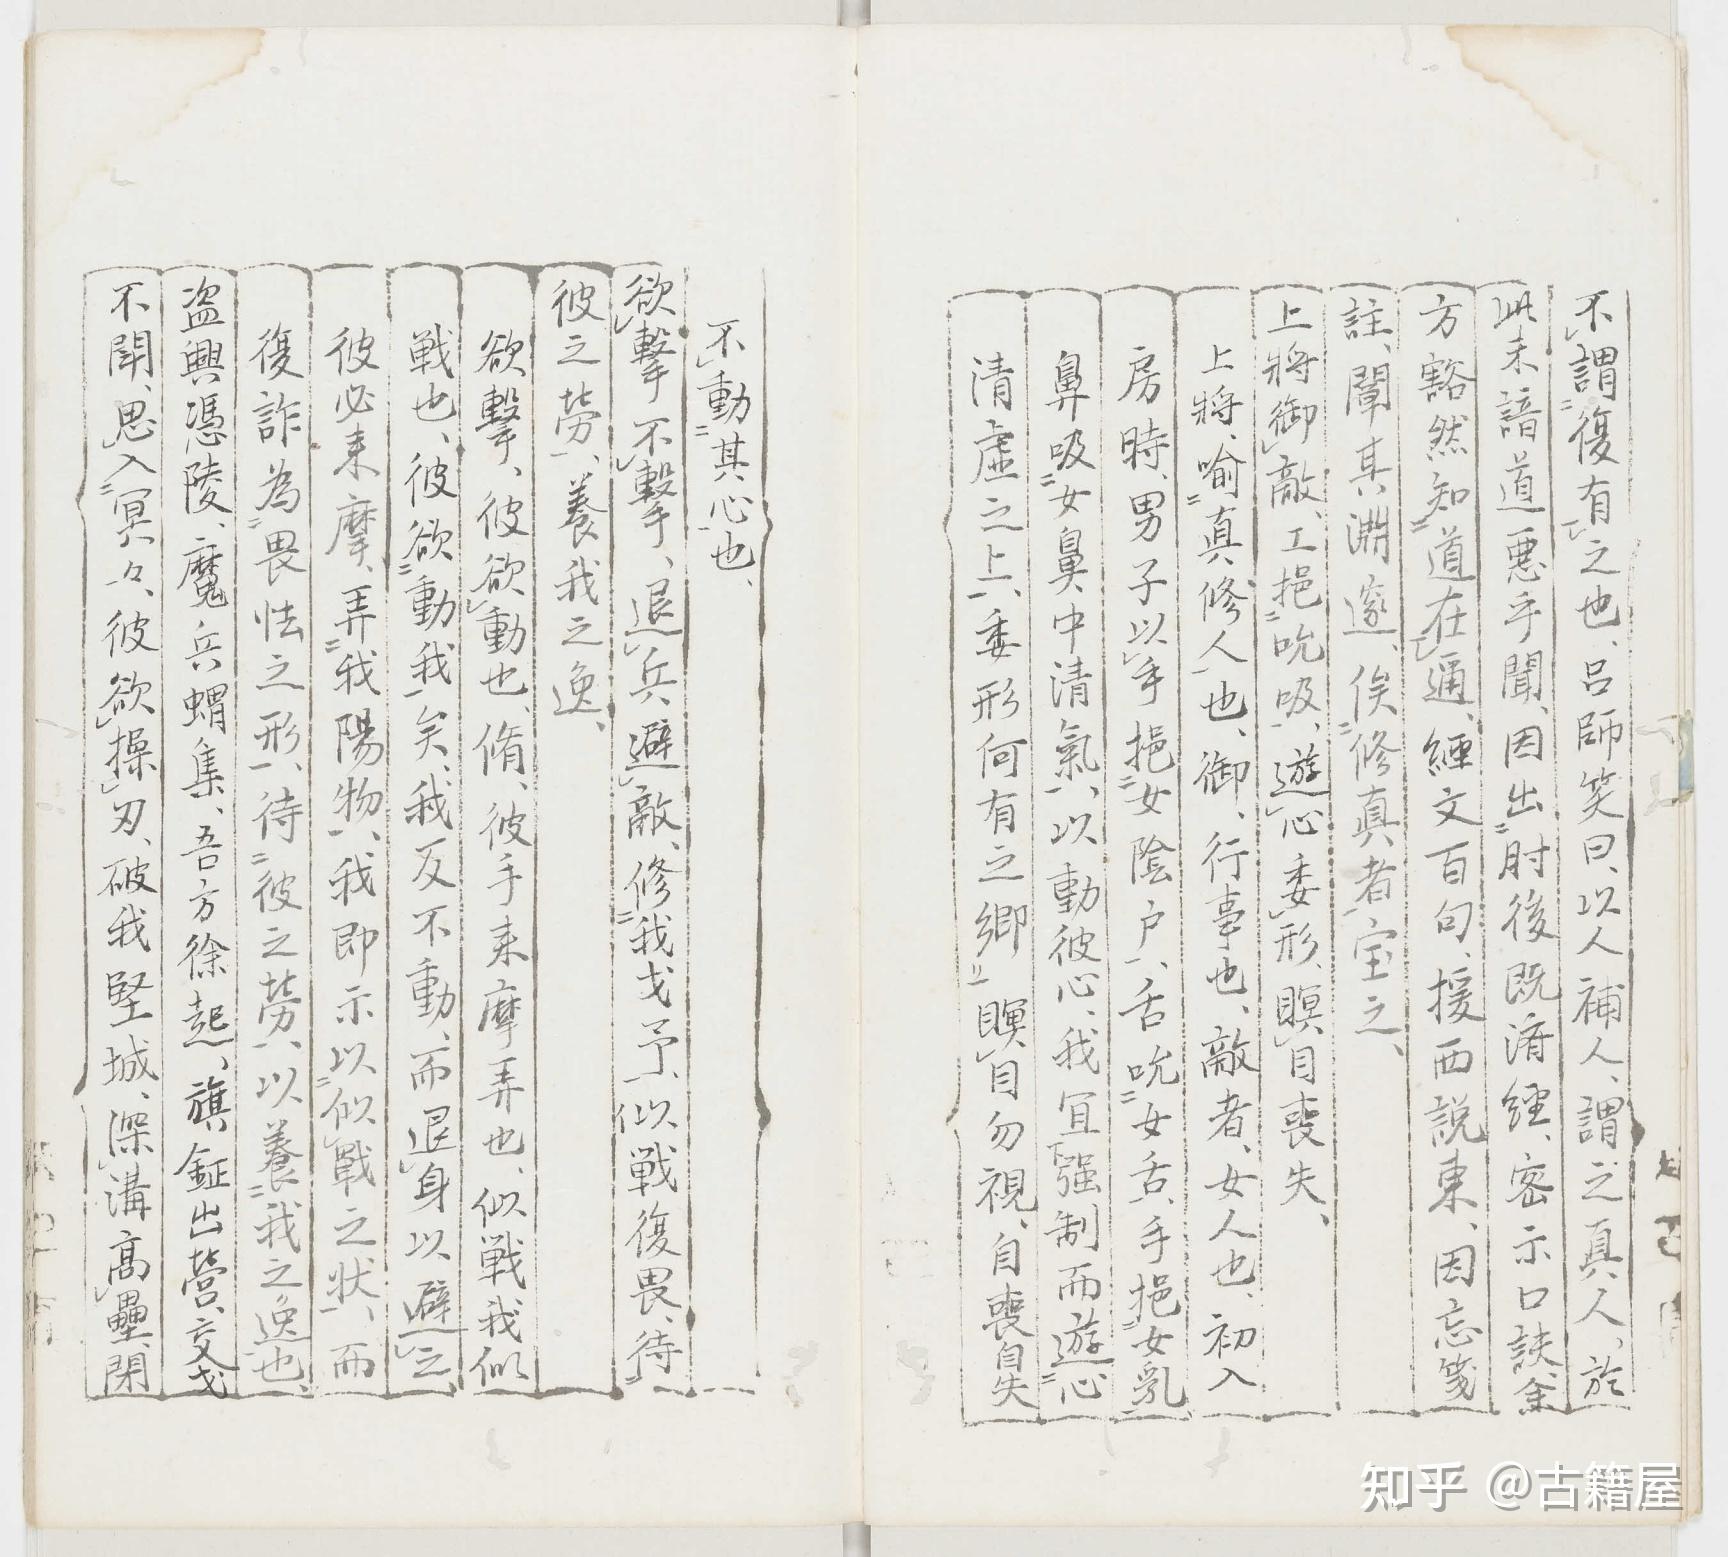 不謂復有之也、呂師笑曰、以人補人、謂之真人、於
此未諳道惡乎聞、因出肘後既濟經、密示口訣、余
方豁然知道在邇、經文百句、援西説東、因忘箋
註、闡其淵邃、俟修真者宝之、
上將御敵、工挹吮吸、遊心委形、瞑目喪失、
上將、喻真修人也、御、行事也、敵者、女人也、初入
房時、男子以手挹女陰户、舌吮女舌、手挹女乳、
鼻吸女鼻中清氣、以動彼心、我宜強制而遊心
清虛之上、委形何有之郷、瞑目勿視、自喪自失
不動其心也、
欲擊不擊、退兵避敵、修我戈予、似戦復畏、待
彼之勞、養我之逸、
欲擊、彼欲動也、脩、彼手来摩弄也、似戦我似
戦也、彼欲動我矣、我反不動、而退身以避之、
彼必来摩、弄我陽物、我即示以似戰之状、而
復詐為畏怯之形、待彼之勞、以養我之逸也、
盗興憑陵、魔兵蝟集、吾方徐起、旗鉦出營、交戈
不聞、思入冥々、彼欲操刃、破我堅城、深溝高壘、閉
知乎 @古籍屋